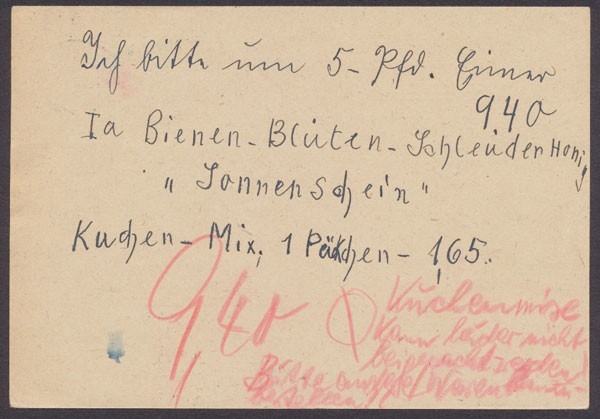 Ich bitte um 5- Pfd. Eimer
940
Ia Bienen-Blüten-Schleuder Honig
"Sonnenschein"
Kuchen-Mix, 1 Päkchen - 1,65.
9,40
Kuchenmixe
kann leider nicht
beigepackt werden!
Bitte andere Waren